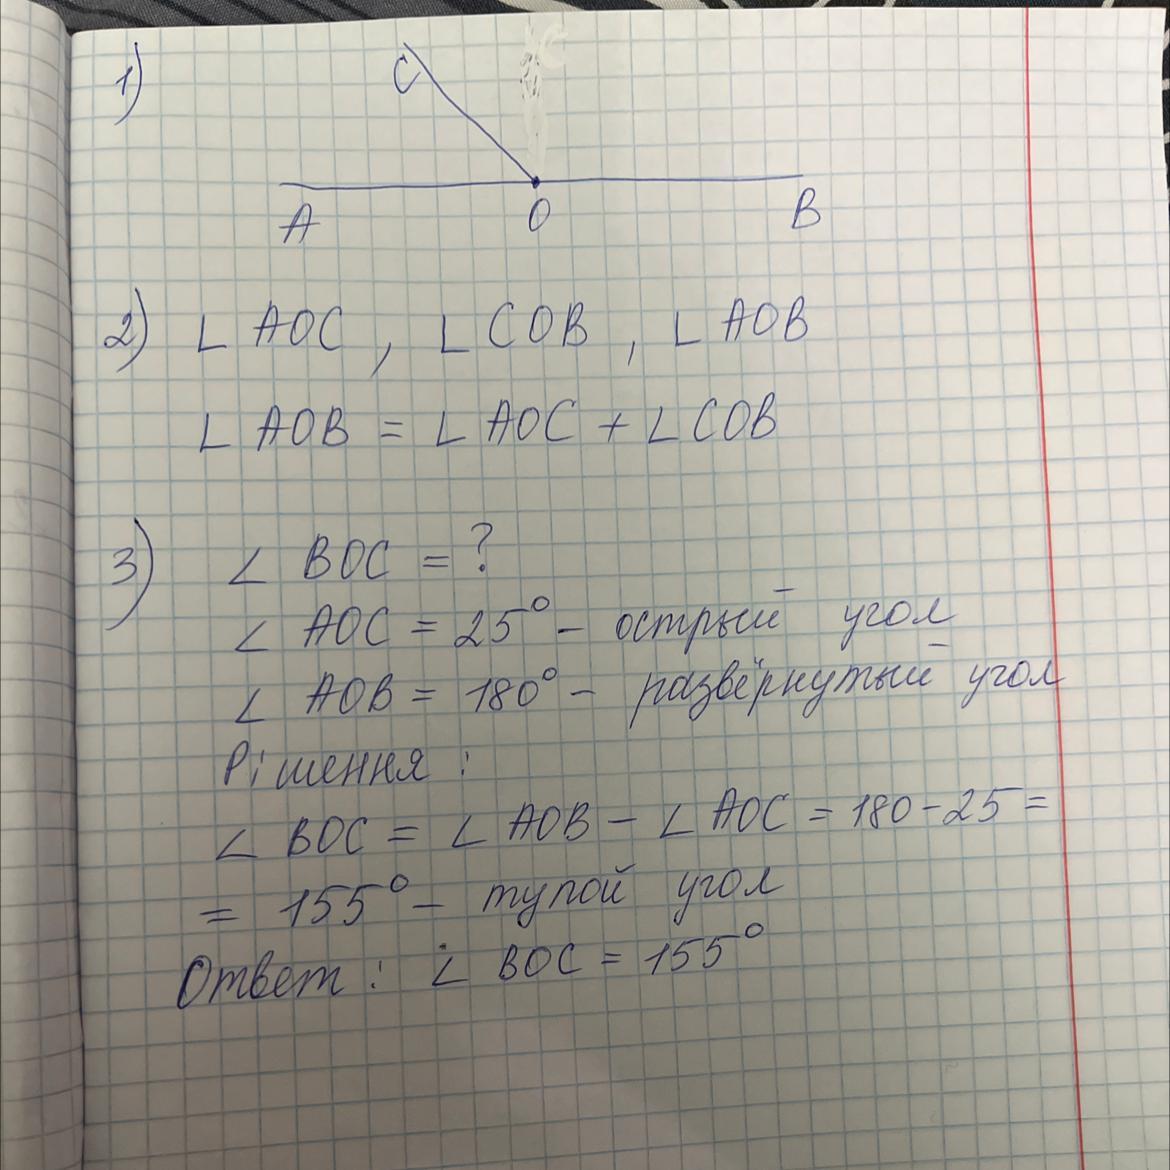 1)
C
A O B
2) ∠ AOC, ∠ COB, ∠ AOB
∠ AOB = ∠ AOC + ∠ COB
3) ∠ BOC = ?
∠ AOC = 25° - острый угол
∠ AOB = 180° - развёрнутый угол
Рішення :
∠ BOC = ∠ AOB - ∠ AOC = 180 - 25 =
= 155° - тупой угол
Ответ : ∠ BOC = 155°